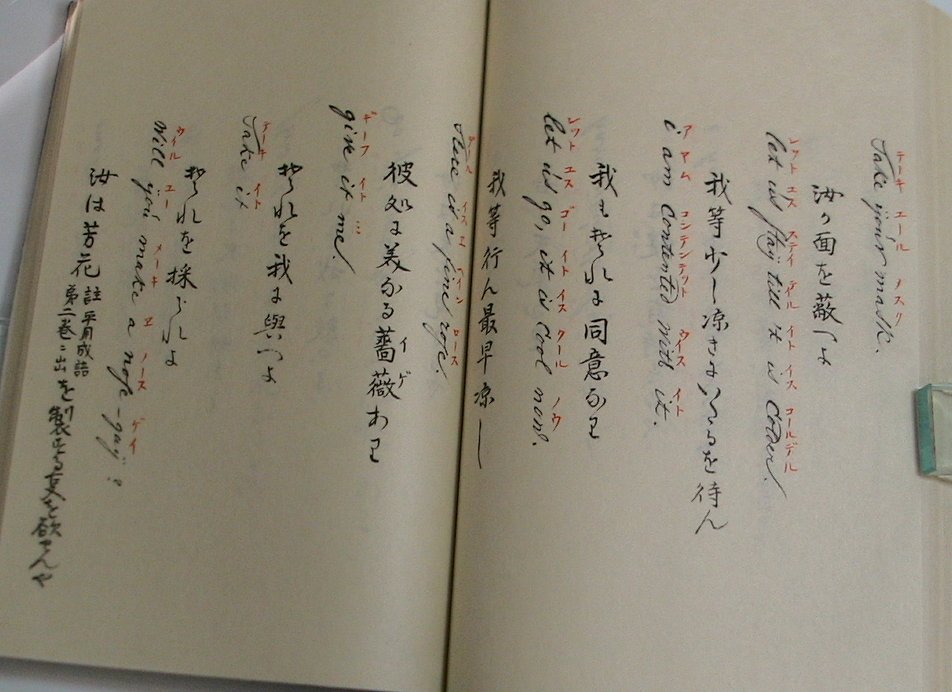 テーキ ユール メスク
Take your mask.
汝の面を蔽へよ
レット エス ステイ テイル イト イス コールデル
let us stay till it is Colder.
我等少し凉さよくなるを待ん
ア アヤム コンテンテット ウイス イト
i am Contented with it.
我も其れに同意なり
レット エス ゴー イト イス クール ノウ
let us go, it is Cool now.
我等行ん最早凉し
イス エ ハイン ロース
there is a fine rose.
彼処に美なる薔薇あり
イ ゲ
ギーフ イト ミ
give it me.
其れを我に與へよ
テーキ イト
Take it
其れを採られよ
ウイル ユー メーキ エ ノース ゲイ
Will you make a nose-gay?
汝は芳花
註平角成詰
第二巻ニ出
を製する事を欲せんや